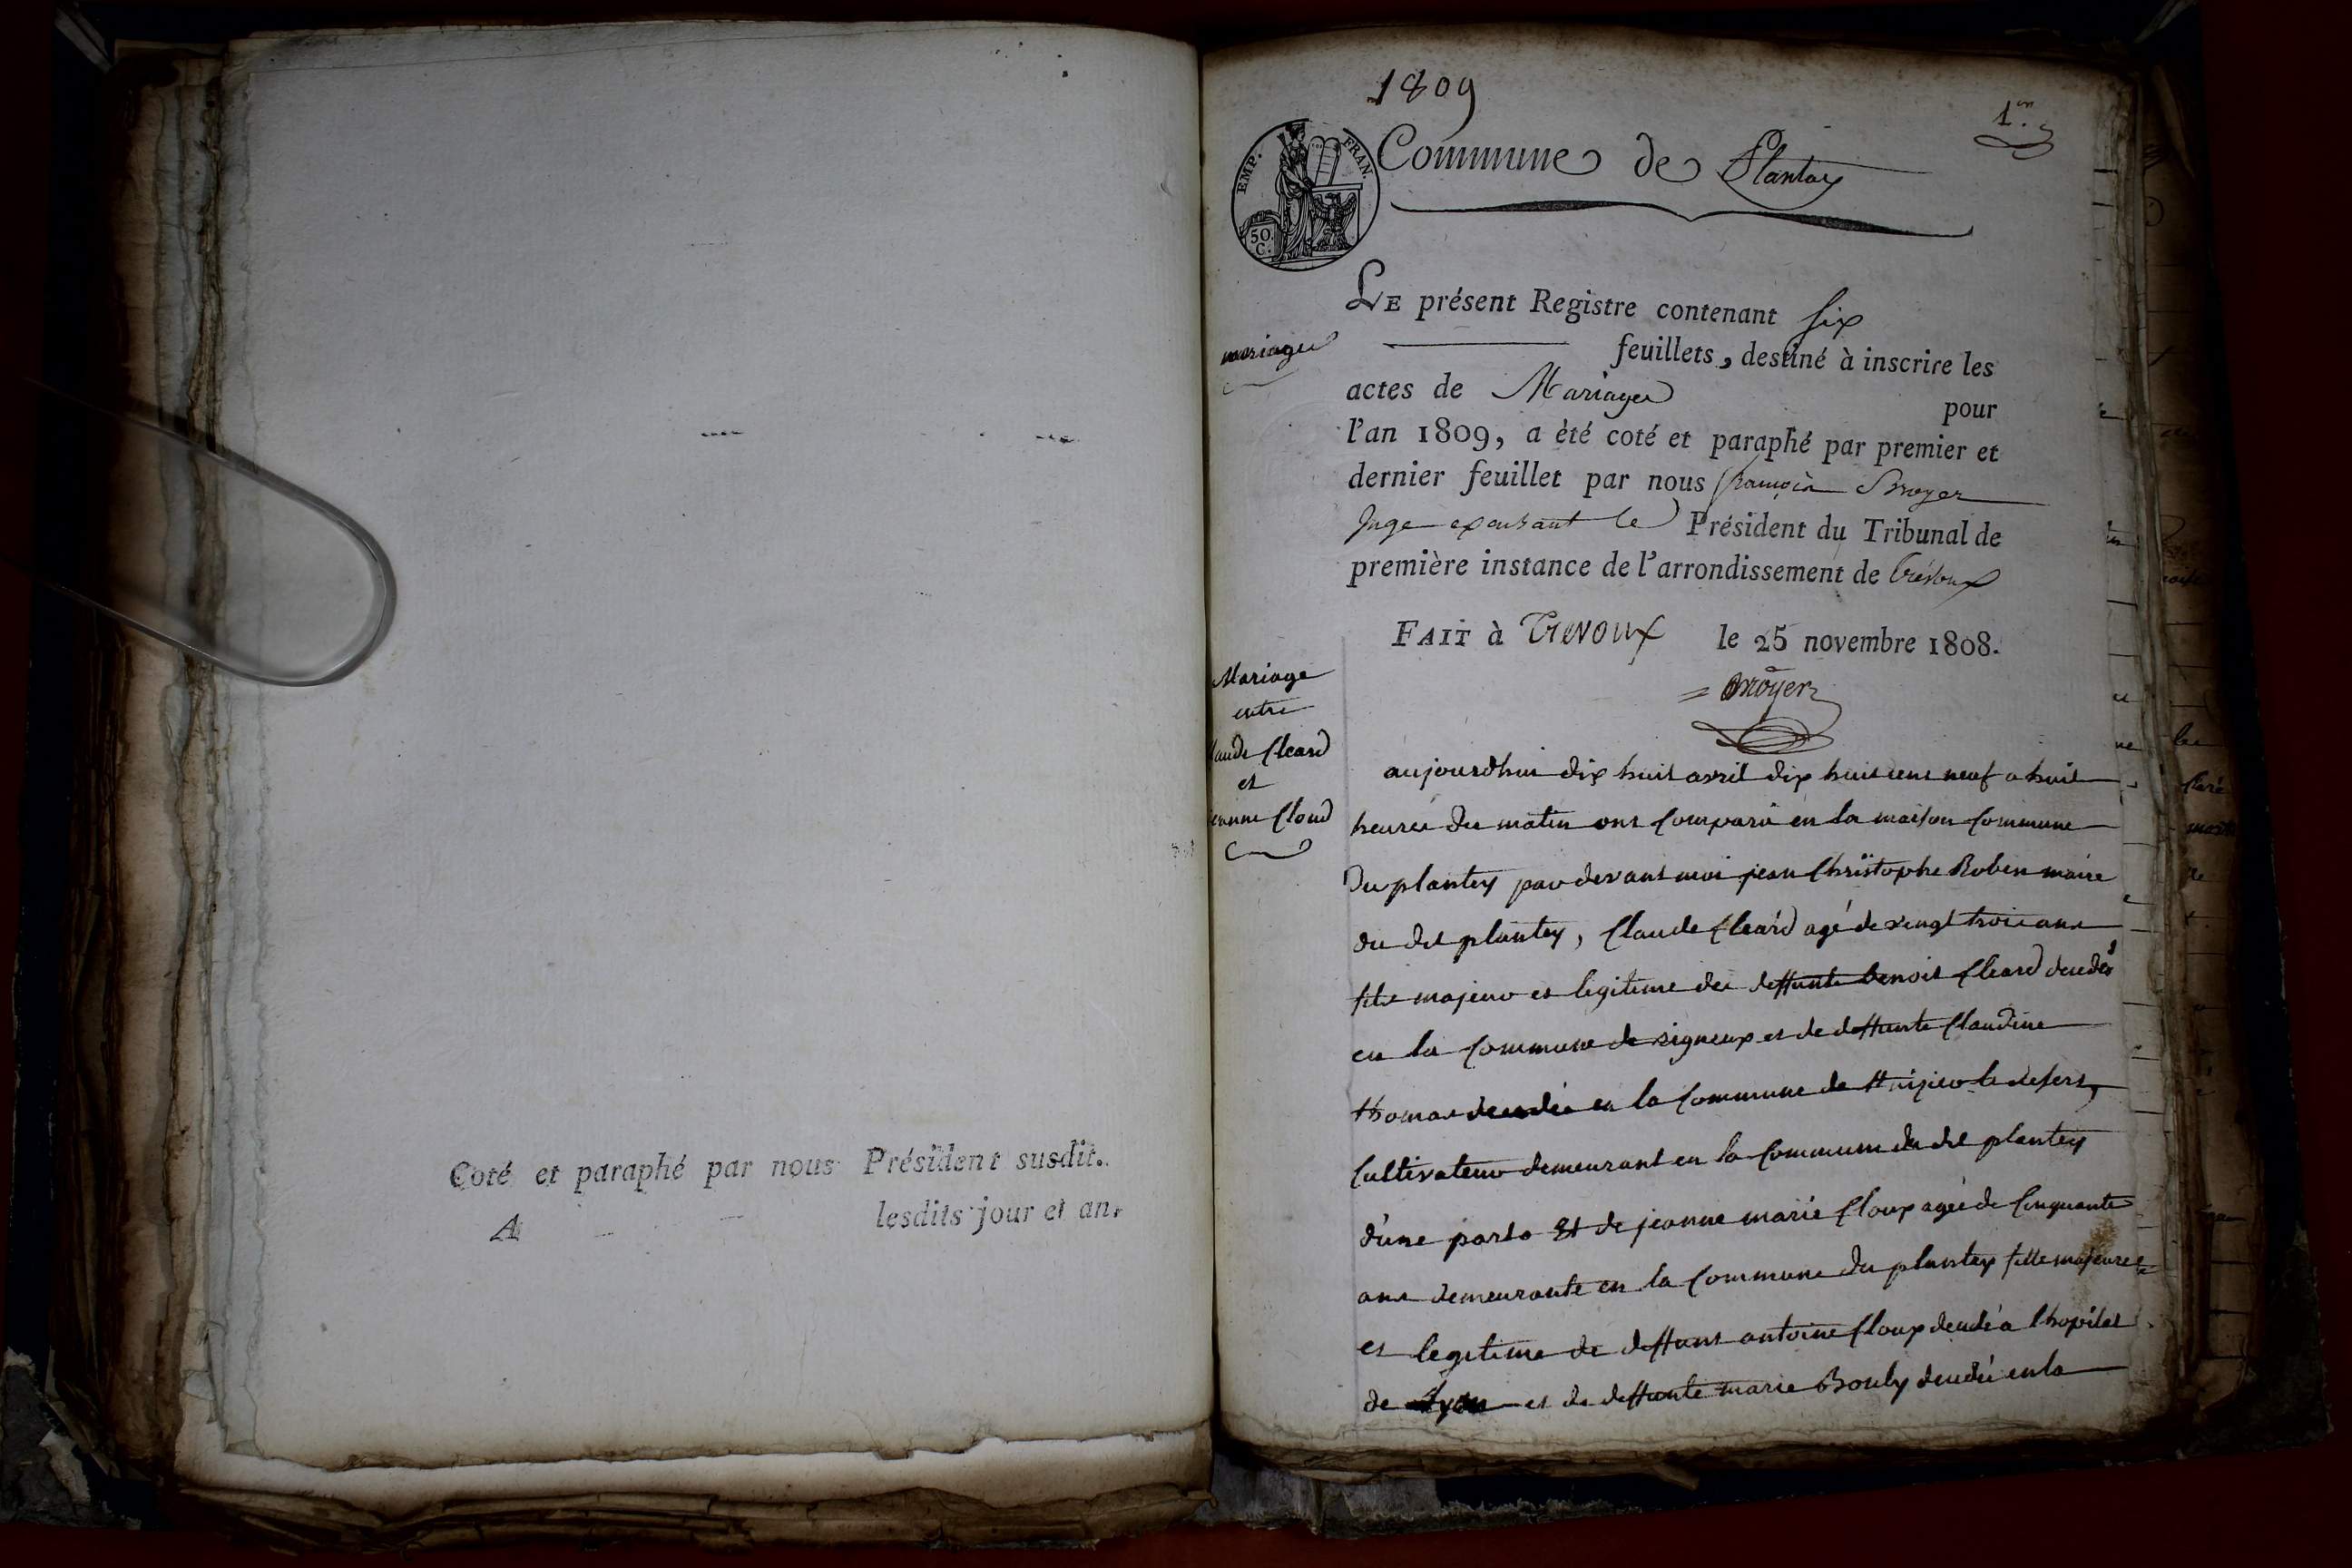 Coté et paraphé par nous Président susdit.
A lesdits jour et an.
1809
1er
EMP. FRAN.
50 C.
Commune de Plantay
LE présent Registre contenant six
feuillets, destiné à inscrire les
mariages
actes de Mariages pour
l'an 1809, a été coté et paraphé par premier et
dernier feuillet par nous françois Broyer
Juge exerçant le Président du Tribunal de
première instance de l'arrondissement de Trévoux
FAIT à Trevoux le 25 novembre 1808.
Broyer
Mariage
entre
laude Cleard
et
eanne Cloud
aujourdhui dix huit avril dix huit cent neuf a huit
heures du matin ont Comparu en la maison Commune
Du plantey par devant moi jean Christophe Robin maire
du dit plantey, Claude Cleard agé de vingt trois ans
fils majeur et legitime de deffunt benoit Cleard decedé
en la Commune de vigneux et de deffunte Claudine
thomas decedée en la Commune de le desert,
Cultivateur demeurant en la Commune du dit plantey
d'une part Et de jeanne marie Cloup agée de Cinquante
ans demeurante en la Commune du plantey fille majeure
et legitime de deffunt antoine Cloup decedé a lhopital
de Lyon et de deffunte marie Bouly decedée en la